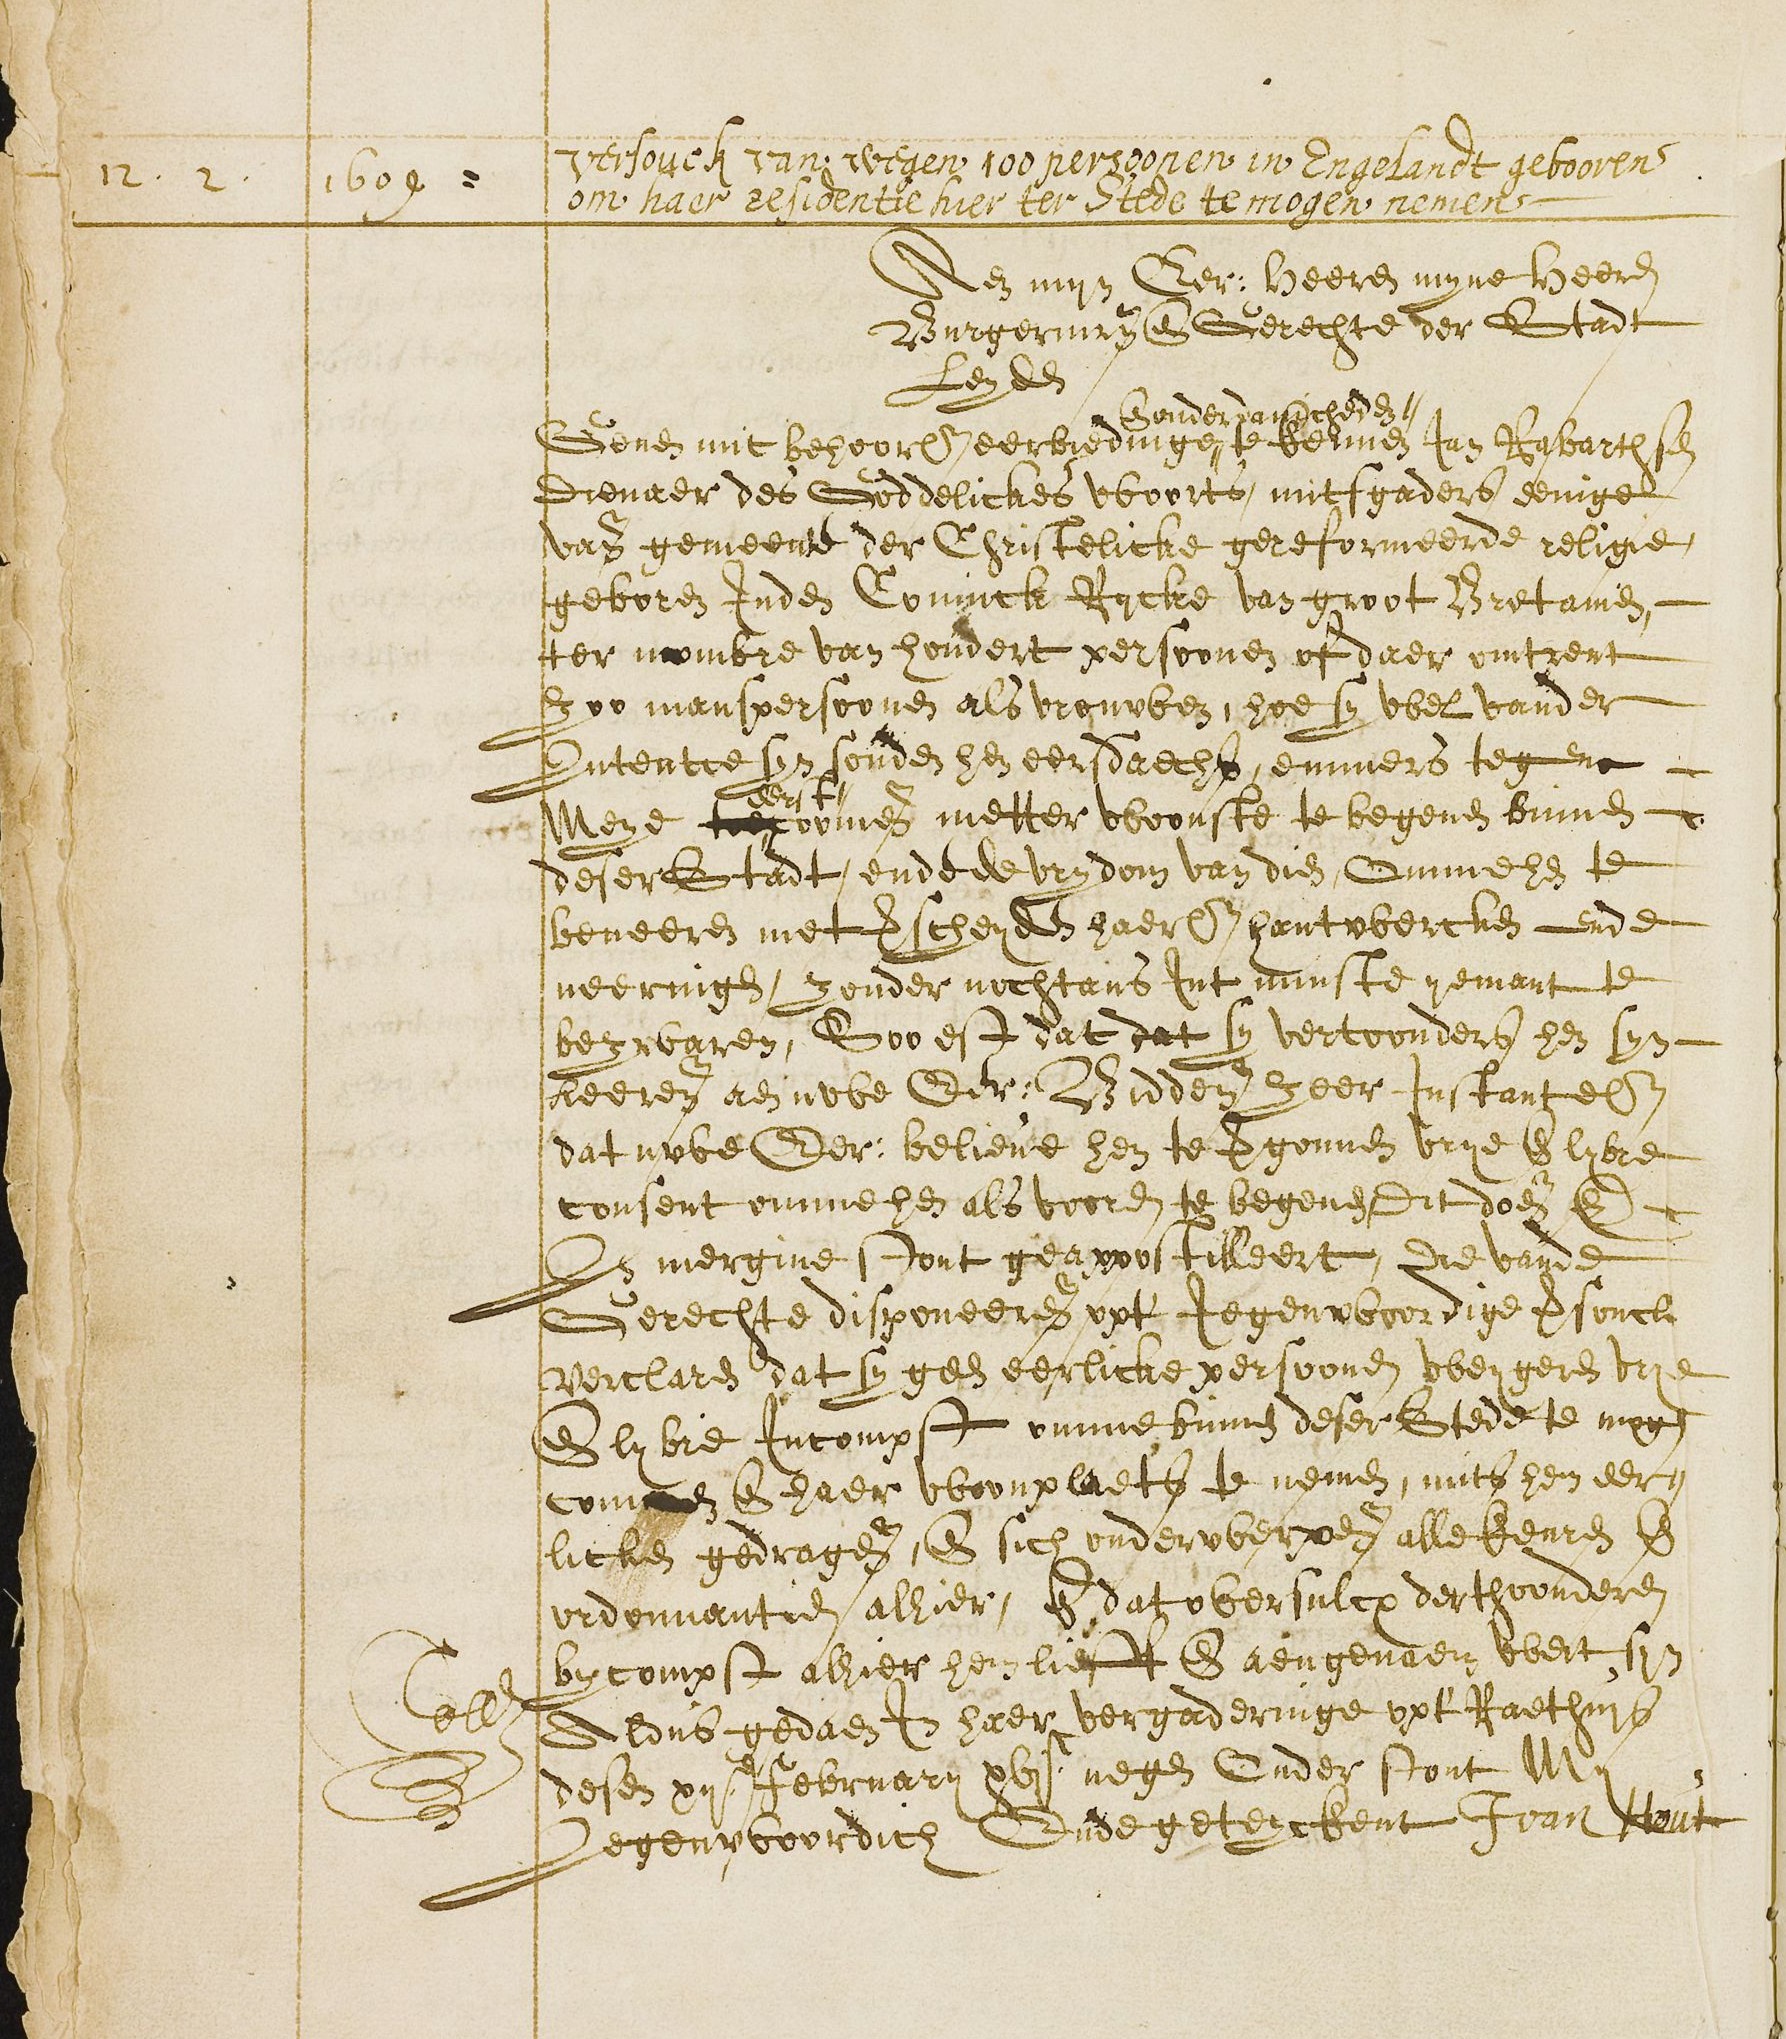 12. 2. 1609 =
versouck van wegen 100 persoonen in Engelandt gebooren
om haer residentie hier ter Stede te mogen nemen
Aen mijn Eer: Heeren myne Heeren
Burgermrs. en Gerechte der Stadt
Leyden
onderdanicheden
Geven mit behoorl. eerbiedinge te kennen Jan Rabarthsen
dienaer des Goddelickes woorts, mitsgaders eenige
van gemeente der Christelicke gereformeerde religie,
geboren Inden Coninck Rycke van groot Bretanien,
ter nombre van hondert persoonen of daer omtrent
zoo manspersoonen als vrouwen, hoe sy wel vander
Intentie syn souden hen eersdaechs, emmers tegens
eerst
Meye comen metter woonste te begeven binnen
deser Stadt, ende de vrydom van dien, Omme hen te
beneeren met verscheyden haerl. hantwercken ende
neeringen, zonder nochtans Int minste yemant te
bezwaren, Soo est dat dat sy vertoonders hen syn
keeren aen uwe Eer: Bidden zeer Instantel.
dat uwe Eer: believe hen te vergonnen vrye en lybre
consent omme hen als vooren te begeven Dit doen en
In mergine stont geappostilleert, Die vande
Gerechte disponeren opt Jegenwoordige versouck
verclaren dat sy geen eerlicke persoonen weygeren vrye
en lybre Incompst omme binnen deser Stede te mogen
comen en haer woonplaets te nemen, mits hen eer
licken gedragen, en sich onderwerpen alle keuren en
ordonnantien alhier, en dat oversulcx derthoonderen
bycompst alhier hem lieff en aengenaem wert syn
Aldus gedaen In haer vergaderinge opt Raethuys
Coll.
desen xijen February xvjc. negen Onder stont My
Jegenwoordich Ende geteyckent J van Hout